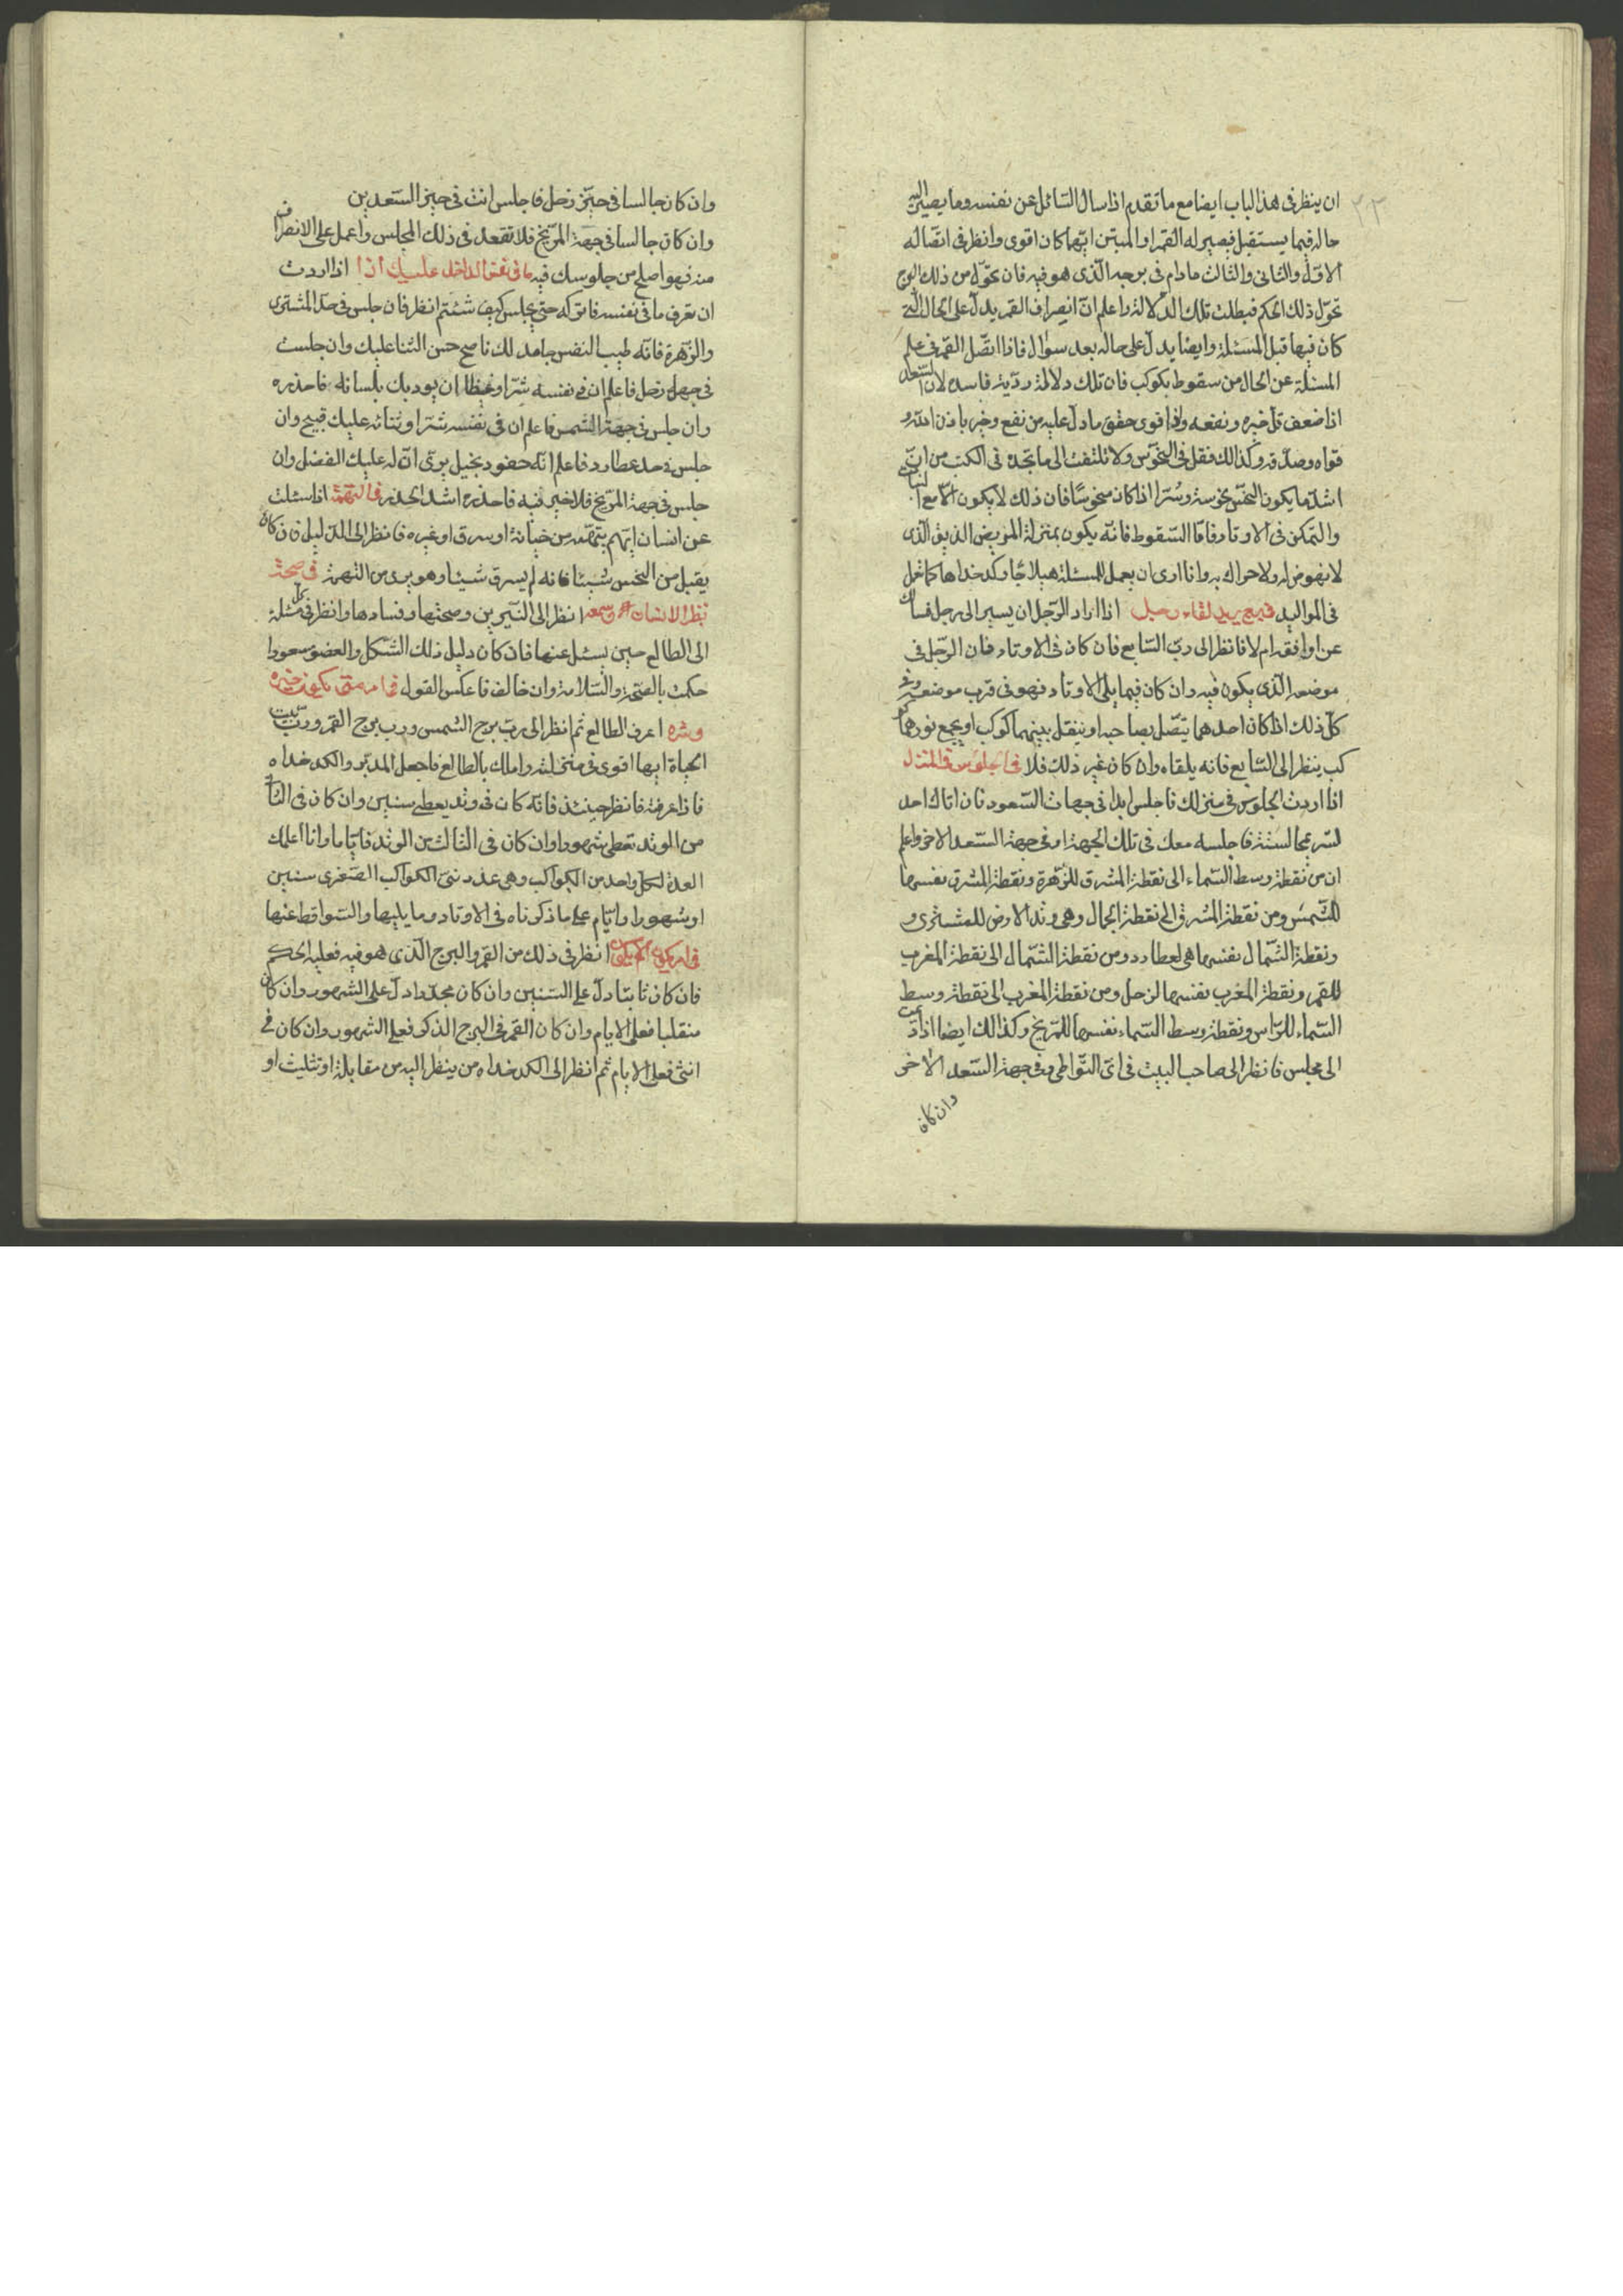 ٢٣
ان ينظر فى هذا الباب ايضا مع ما تقدم اذا سال السّائل عن نفسه وما يصير اليه
حاله فيما يستقبل فيصير له القمر او المبتز ايّهما كان اقوى وانظر فى اتصاله
الاوّل والثانى والثالث مادام فى برجه الّذى هو فيه فان تحوّل من ذلك البرج
تحوّل ذلك الحكم فبطلت تلك الدّلالة واعلم انّ انصراف القمر يدلّ على الحال الّتى
كان فيها قبل المسئلة وايضا يدلّ على حاله بعد سؤال فاذا اتّصل القمر فى علم
المسئلة عن الحال من سقوط بكوكب فان تلك دلالة رديّة فاسدة لان السّعد
اذا ضعف قلّ خيره ونفعه واذا قوى حقق ما دلّ عليه من نفع وخير باذن الله و
قواه وصدّقه وكذالك فقل فى النحوس ولا تلتفت الى ما تجده فى الكتب من ان
اشدّ ما يكون النحس نحوسة وشرا اذا كان منحوسًا فان ذلك لا يكون الّا مع الثبات
والتمكن فى الاوتاد فامّا السّقوط فانّه يكون بمنزلة المريض الدنف الّذى
لا نهوض له ولا حراك به وانا ارى ان يعمل للمسئلة هيلاجًا وكدخداها كما تعمل
فى المواليد فيمن يريد لقاء رجل اذا اراد الرّجل ان يسير الى رجل فسالك
عن اوافقه ام لا فانظر الى ربّ السّابع فان كان فى الاوتاد فان الرّجل فى
موضعه الّذى يكون فيه وان كان فيما يلى الاوتاد فهو فى قرب موضعه وفى
كلّ ذلك اذا كان احدهما يتّصل بصاحبه او ينقل بينهما كوكب او يجمع نورهما كو
كب ينظر الى السّابع فانه يلقاه وان كان غير ذلك فلا فى الجلوس فى المنزل
اذا اردت الجلوس فى منزلك فاجلس ابدا فى جهات السّعود فان اتاك احد
تسر بمجالسته فاجلسه معك فى تلك الجهة او فى جهة السّعد الاخر واعلم
ان من نقطة وسط السّماء الى نقطة المشرق للزّهرة ونقطة المشرق نفسها
للشّمس ومن نقطة المشرق الى نقطة الجمال وهى وتد الارض للمشترى و
ونقطة الشّمال نفسها هى لعطارد ومن نقطة الشّمال الى نقطة المغرب
للقمر ونقطة المغرب نفسها لزحل ومن نقطة المغرب الى نقطة وسط
السّماء للرّاس ونقطة وسط السّماء نفسها للمرّيخ وكذالك ايضا اذا
الى مجلس فانظر الى صاحب البيت فى اىّ النّواحى وفى جهة السّعد الاخر
وان كان
وان كان جالسا فى حيّز زحل فاجلس انت فى حيز السّعدين
وان كان جالسا فى جهة المرّيخ فلا تقعد فى ذلك المجلس واعمل على الانصراف
منه فهو اصلح من جلوسك فيه ما فى نفس الداخل عليك اذا اذا اردت
ان تعرف ما فى نفسه فاتركه حتى يجلس كيف شئتم انظر فان جلس فى حدّ المشترى
والزّهرة فانّه طيب النفس حامد لك ناصح حسن الثنا عليك وان جلست
فى جهة زحل فاعلم ان فى نفسه شرّا وغيظا ان يوديك بلسانه فاحذره
وان جلس فى جهة الشّمس فاعلم ان فى نفسه شرّا وثنائه عليك قبيح وان
جلس فى حد عطارد فاعلم انّه حقود بخيل يرى انّ له عليك الفضل وان
جلس فى جهة المرّيخ فلا خير فيه فاحذره اشد الحذر فى التّهمة اذا سئلت
عن انسان ايّهم بتّهمه من خيانة او سرق او غيره فانظر الى الدّليل فان كان
يقبل من النحس شيئا فانه لم يسرق شيئا وهو برى من التهمة فى صحة
نظر الانسان وسمعه انظر الى النّيرين وصحتها وفسادها وانظر فى كل مسئلة
الى الطالع حين يسئل عنها فان كان دليل ذلك الشّكل والعضو مسعودا
حكمت بالصّحة والسّلامة وان خالف فاعكس القول فى امر متى يكون خيره
وشره اعرف الطالع ثم انظر الى ربّ برج الشمس ورب برج القمر وربّ بيت
الحياة ايها اقوى فى منزلته واملك بالطالع فاجعل المدبّر والكدخداه
فاذا عرفته فانظر حينئذ فانّه كان فى وتد يعطى سنين وان كان فى الثانى
من الوتد تعطى شهورا وان كان فى الثالث من الوتد فايّاما وانا اعلمك
العدة لكل واحد من الكواكب وهى عدد سنىّ الكواكب الصّغرى سنين
او شهورا وايّام على ما ذكرناه فى الاوتاد وما يليها والسّواقط عنها
فى امر يكون ام يكون انظر فى ذلك من القمر والبرج الّذى هو فيه فعليه الحكم
فان كان ثابتا دلّ على السّنين وان كان مجسّدا دلّ على الشهور وان كان
منقلبا فعلى الايام وان كان القمر فى البرج الذكر فعلى الشهور وان كان فى
انثى فعلى الايام ثم انظر الى الكدخداه من ينظر اليه من مقابلة او تثليث او